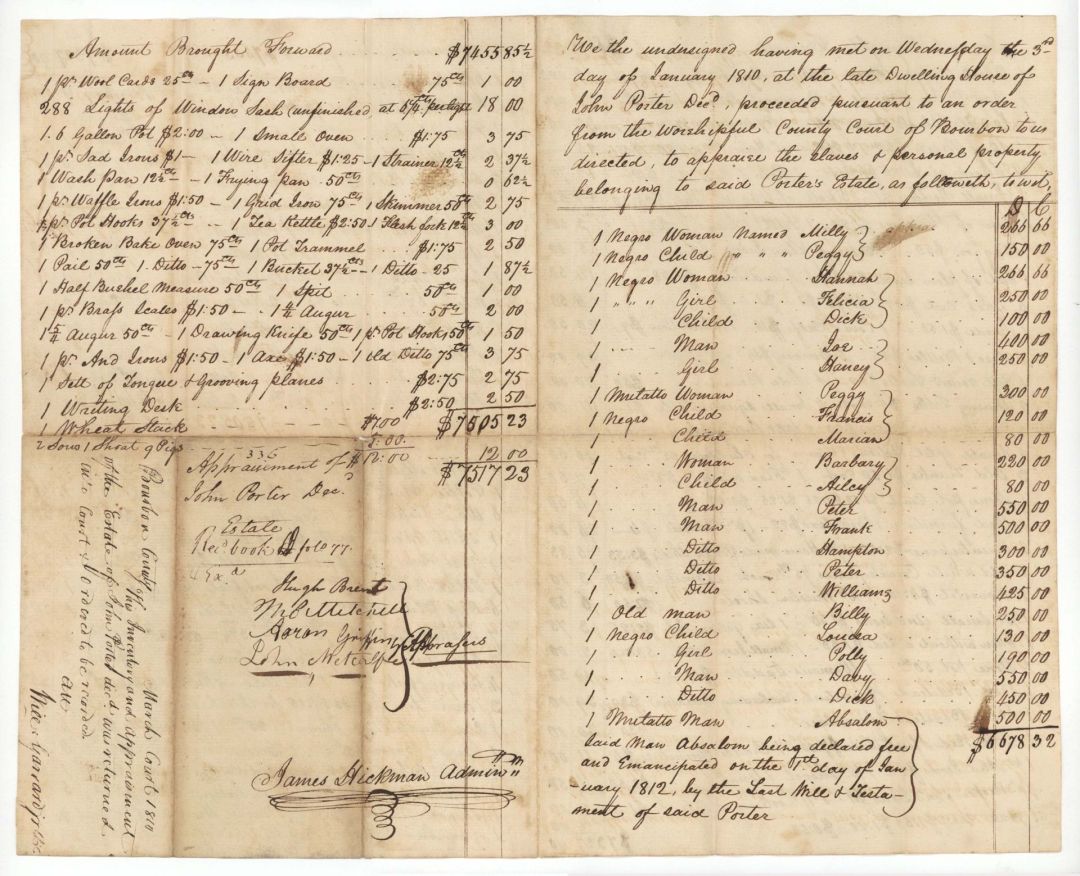 Amount Brought Forward $7455 85½
1 pr. Wool Cards 25cts – 1 Sign Board 75cts 1 00
288 Lights of Window Sash (unfinished) at 6¼cts 18 00
1. 6 Gallon Pot $2:00 – 1 Small Oven $1:75 3 75
1 pr. Sad Irons $1 – 1 Wire Sifter $1:25 – 1 Strainer 12½ 2 37½
1 Wash Pan 12½cts – 1 Frying pan 50cts 0 62½
1 pr. Waffle Irons $1:50 – 1 Grid Iron 75cts 1 Skimmer 50cts 2 75
1 pr. Pot Hooks 37½cts – 1 Tea Kettle $2:50 1 Flesh fork 12½ 3 00
1 Broken Bake Oven 75cts 1 Pot Trammel $1:75 2 50
1 Pail 50cts 1 Ditto – 75cts 1 Bucket 37½cts – 1 Ditto – 25 1 87½
1 Half Bushel Measure 50cts 1 Spit 50cts 1 00
1 pr. Brass Scales $1:50 – 1 4/4 Augur 50cts 2 00
1 5/4 Augur 50cts – 1 Drawing Knife 50cts 1 pr. Pot Hooks 50cts 1 50
1 pr. And Irons $1:50 – 1 Axe $1:50 – 1 old Ditto 75cts 3 75
1 Sett of Tongue & Grooving planes $2:75 2 75
1 Writing Desk $2:50 2 50
1 Wheat Stack $7.00 $7505 23
2 Sows 1 Shoat 9 Pigs 5.00
$12:00 12 00
$7517 23
336
Appraisment of
John Porter Decd
Estate
Recd book D folo 77.
Exd
Hugh Brent
Mitchell
Aaron Griffing
John Metcalfe
Apprasers
James Hickman Admin
Bourbon County March Court 1810
This Inventory and appraisment
of the Estate of John Porter decd was returned
into Court & ordered to be recorded

Garrard
We the undersigned having met on Wednesday the 3rd
day of January 1810, at the late Dwelling House of
John Porter Decd, proceeded pursuant to an order
from the Worshipful County Court of Bourbon to us
directed, to appraise the slaves & personal property
belonging to said Porter's Estate, as followeth, to wit,
D C
1 Negro Woman Named Milly 266 66
1 Negro Child " " " Peggy 150 00
1 Negro Woman Hannah 266 66
1 " " " Girl Felicia 250 00
1 Child Dick 100 00
1 Man Joe 400 00
1 Girl Haney 250 00
1 Mulatto Woman Peggy 300 00
1 Negro Child Francis 120 00
1 Child Marian 80 00
1 Woman Barbary 220 00
1 Child Ailcy 80 00
1 Man Peter 550 00
1 Man Frank 500 00
1 Ditto Hampton 300 00
1 Ditto Peter 350 00
1 Ditto Williams 425 00
1 Old man Billy 250 00
1 Negro Child Louisa 130 00
1 Girl Polly 190 00
1 Man Davy 550 00
1 Ditto Dick 450 00
1 Mulatto Man Absalom 500 00
$6678 32
said Man Absalom being declared free
and Emancipated on the 1st day of Jan
-uary 1812, by the Last Will & Testa-
ment of said Porter